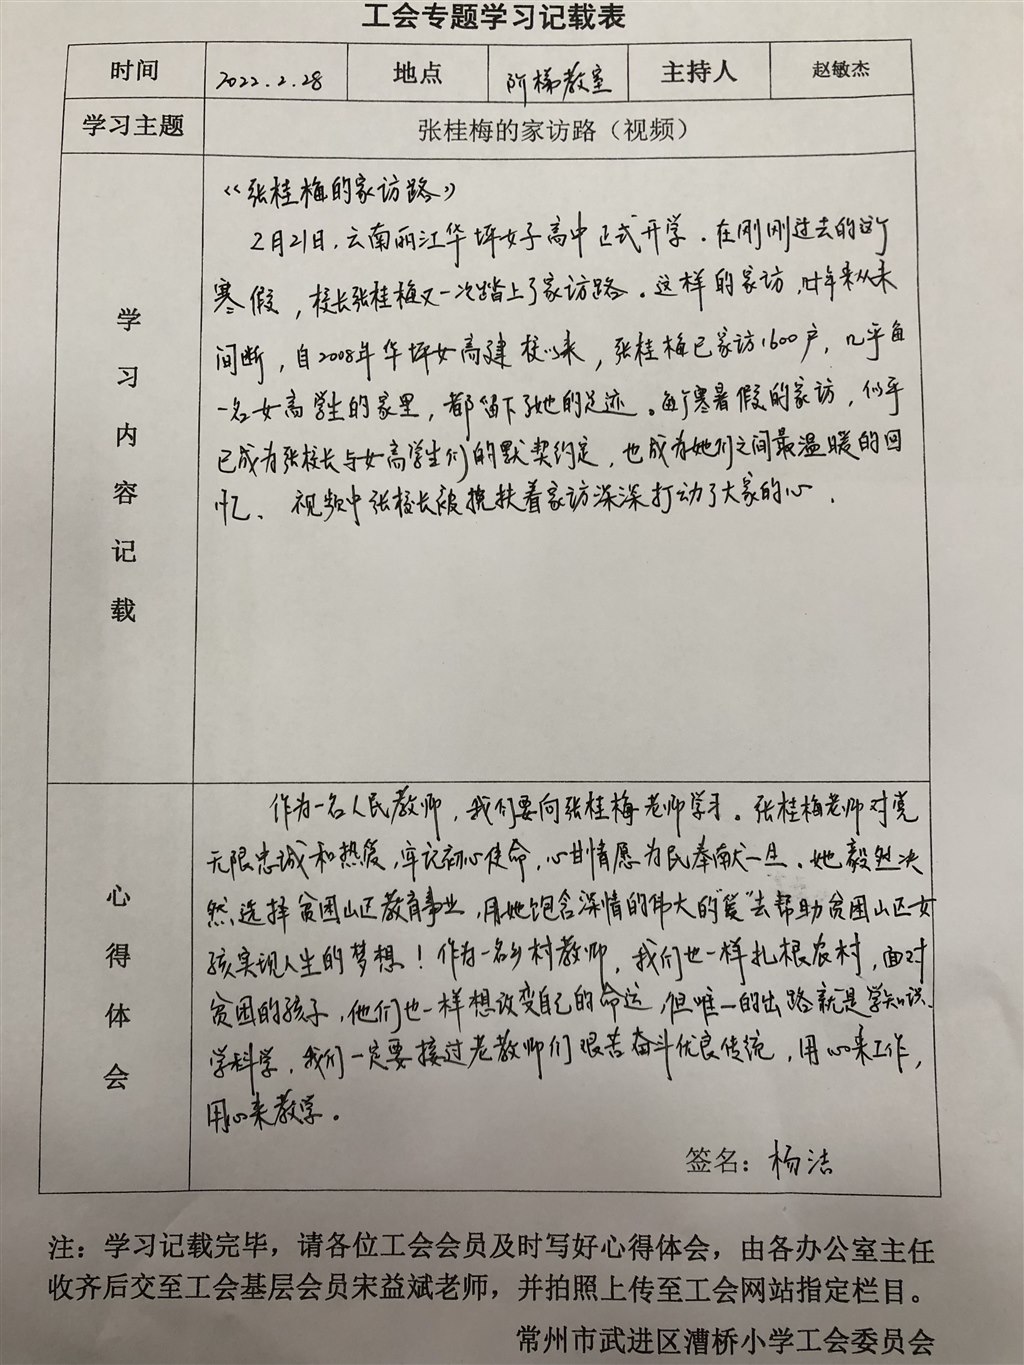 工会专题学习记载表
时间 2022.2.28 地点 阶梯教室 主持人 赵敏杰
学习主题 张桂梅的家访路（视频）
学习内容记载
《张桂梅的家访路》
2月21日，云南丽江华坪女子高中正式开学。在刚刚过去的这个
寒假，校长张桂梅又一次踏上了家访路。这样的家访，年来从未
间断，自2008年华坪女高建校以来，张桂梅已家访1600户，几乎每
一名女高学生的家里，都留下了她的足迹。每个寒暑假的家访，似乎
已成为张校长与女高学生们的默契约定，也成为她们之间最温暖的回
忆、视频中张校长被搀扶着家访深深打动了大家的心．
心得体会
作为一名人民教师，我们要向张桂梅老师学习。张桂梅老师对党
无限忠诚和热爱，牢记初心使命，心甘情愿为民奉献一生．她毅然决
然选择贫困山区教育事业，用她饱含深情的伟大的“爱”去帮助贫困山区女
孩实现人生的梦想！作为一名乡村教师，我们也一样扎根农村，面对
贫困的孩子，他们也一样想改变自己的命运，但唯一的出路就是学知识、
学科学，我们一定要接过老教师们艰苦奋斗优良传统，用心来工作，
用心来教学。
签名：杨洁
注：学习记载完毕，请各位工会会员及时写好心得体会，由各办公室主任
收齐后交至工会基层会员宋益斌老师，并拍照上传至工会网站指定栏目。
常州市武进区漕桥小学工会委员会